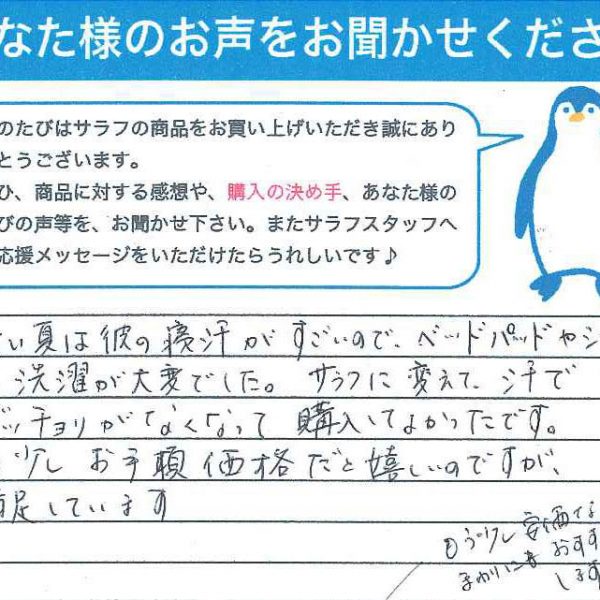 なた様のお声をお聞かせくださ
のたびはサラフの商品をお買い上げいただき誠にあり
とうございます。
ひ、商品に対する感想や、購入の決め手、あなた様の
びの声等を、お聞かせ下さい。またサラフスタッフへ
応援メッセージをいただけたらうれしいです♪
い夏は彼の寝汗がすごいので、ベッドパッドやシ
洗濯が大変でした。サラフに変えて、汗で
ッチョリがなくなって購入してよかったです。
少しお手頃価格だと嬉しいのですが、
足しています
もう少し安価な
まわりにも おすす
します